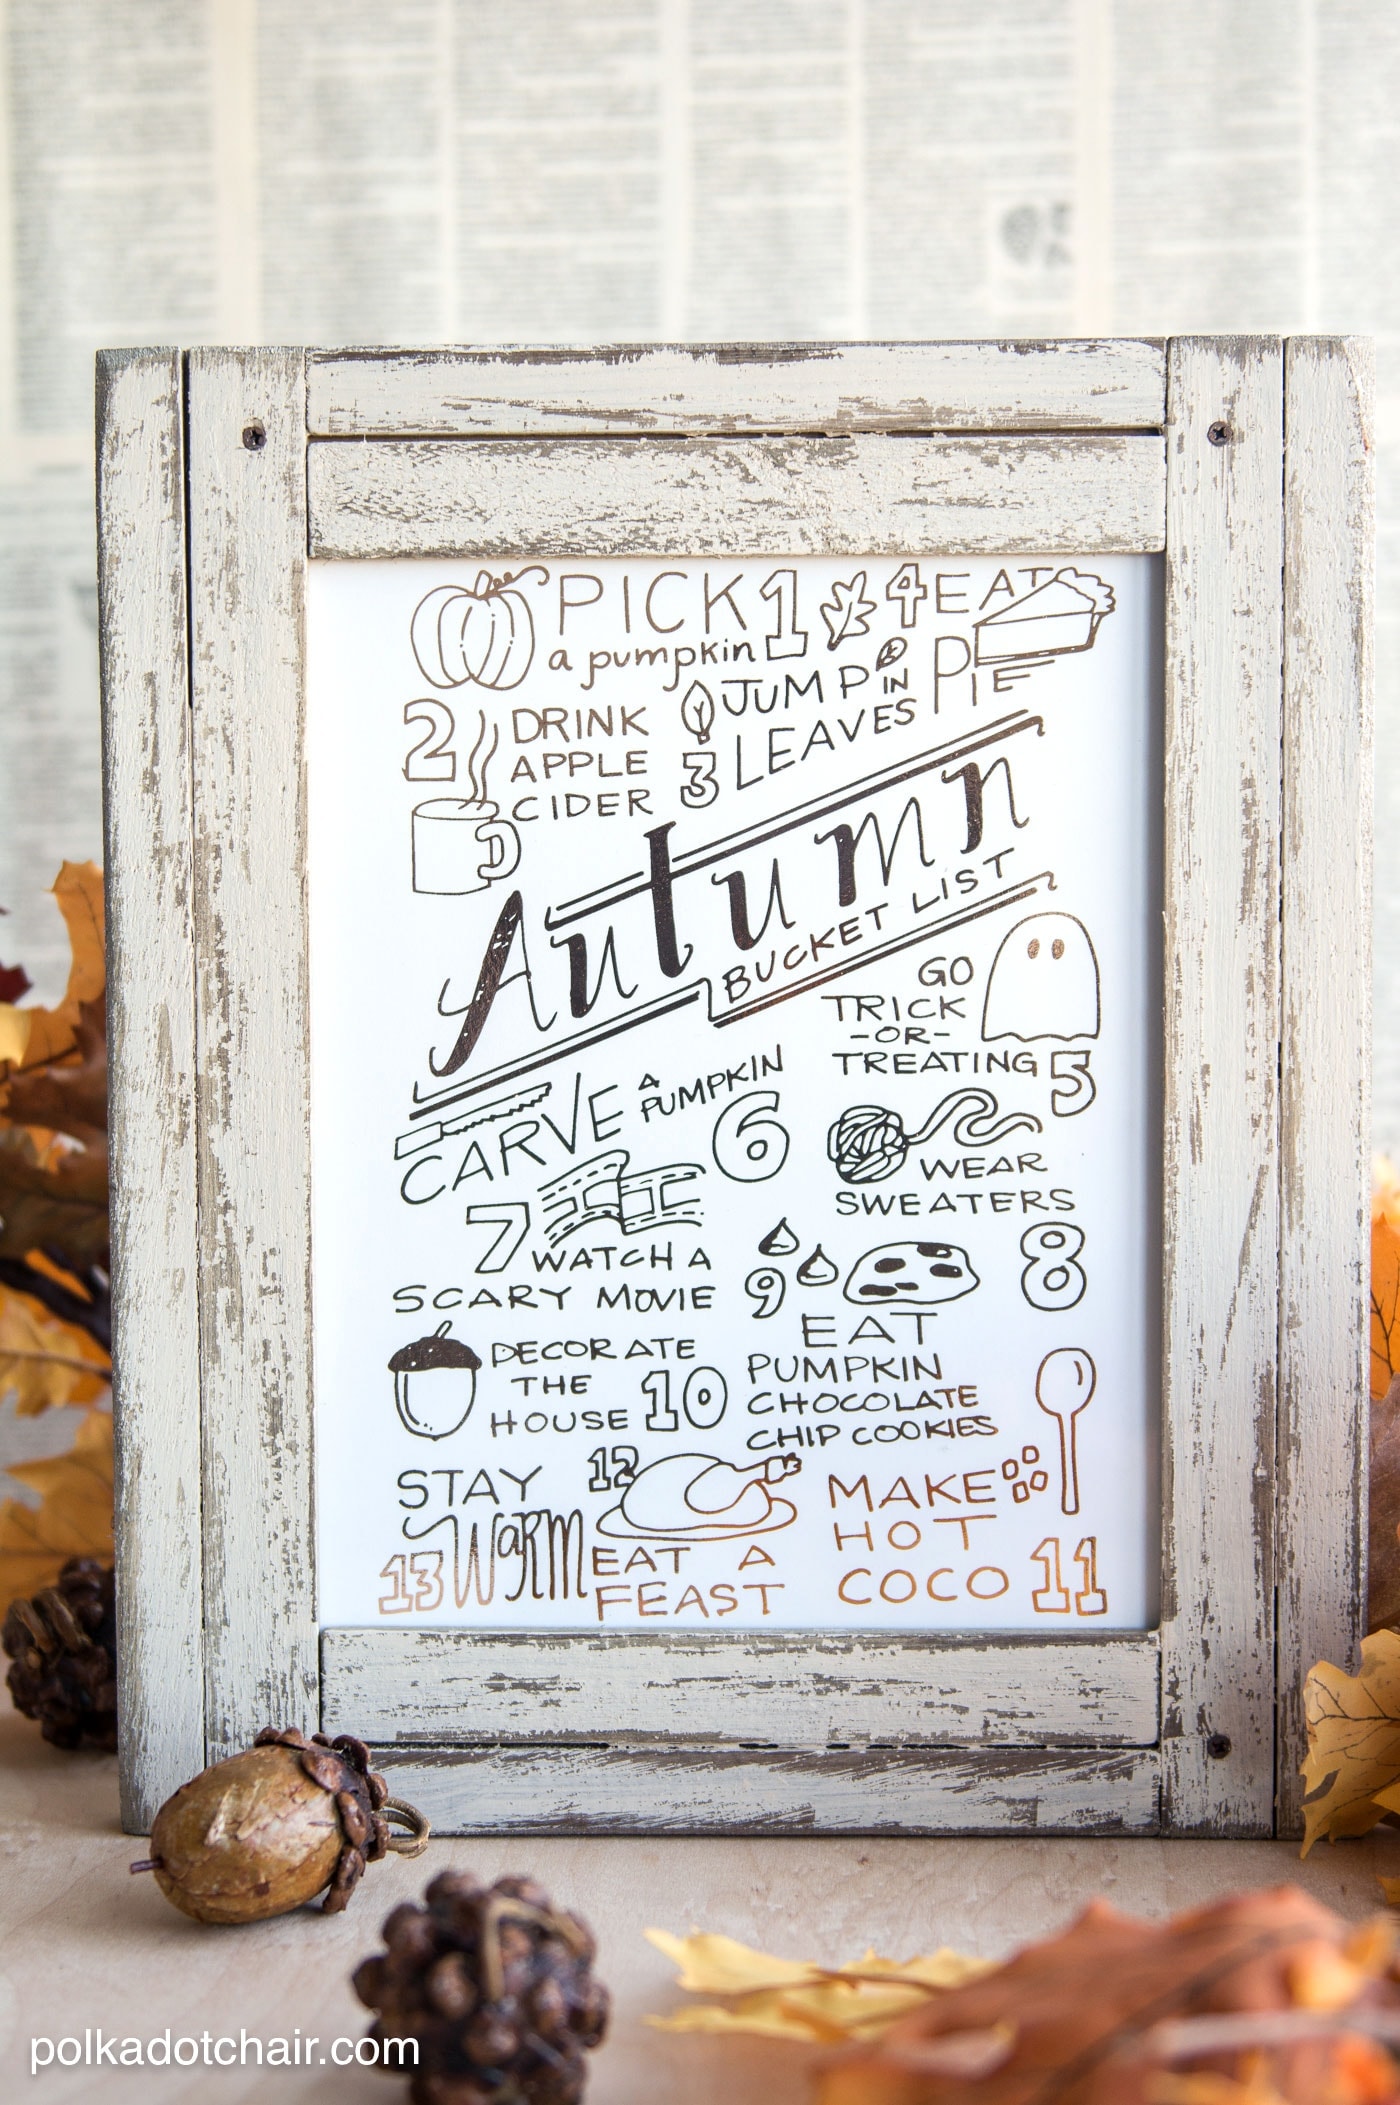 PICK 1
a pumpkin
4 EAT
PIE
2 DRINK
APPLE
CIDER
JUMP IN
3 LEAVES
Autumn
BUCKET LIST
GO
TRICK
-OR-
TREATING 5
CARVE A PUMPKIN 6
WEAR
SWEATERS
8
7 WATCH A
SCARY MOVIE
9
EAT
PUMPKIN
CHOCOLATE
CHIP COOKIES
DECORATE
THE
HOUSE 10
STAY
13 WARM
12
EAT A
FEAST
MAKE
HOT
COCO 11
polkadotchair.com